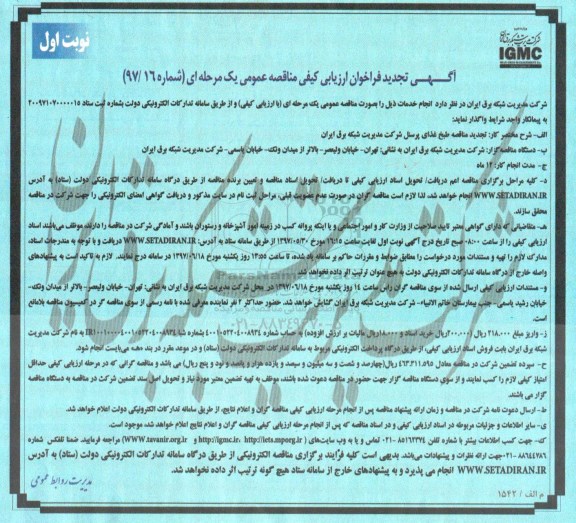 نوبت اول
شرکت مدیریت شبکه برق ایران
IGMC
آگهی تجدید فراخوان ارزیابی کیفی مناقصه عمومی یک مرحله ای (شماره ۱۶ /۹۷)
شرکت مدیریت شبکه برق ایران در نظر دارد انجام خدمات ذیل را بصورت مناقصه عمومی یک مرحله ای (با ارزیابی کیفی) و از طریق سامانه تدارکات الکترونیکی دولت بشماره ثبت ستاد ۲۰۰۹۷۱۰۷۰۰۰۰۰۱۵
به پیمانکار واجد شرایط واگذار نماید:
الف- شرح مختصر کار: تجدید مناقصه طبخ غذای پرسنل شرکت مدیریت شبکه برق ایران
ب- دستگاه مناقصه گزار: شرکت مدیریت شبکه برق ایران به نشانی: تهران- خیابان ولیعصر- بالاتر از میدان ونک- خیابان یاسمی- شرکت مدیریت شبکه برق ایران
ج- مدت انجام کار: ۱۲ ماه
د- کلیه مراحل برگزاری مناقصه اعم دریافت/ تحویل اسناد ارزیابی کیفی تا دریافت/ تحویل اسناد مناقصه و تعیین برنده مناقصه از طریق درگاه سامانه تدارکات الکترونیکی دولت (ستاد) به آدرس
WWW.SETADIRAN.IR انجام خواهد شد، لذا لازم است مناقصه گران در صورت عدم عضویت قبلی، مراحل ثبت نام در سایت مذکور و دریافت گواهی امضای الکترونیکی را جهت شرکت در مناقصه
محقق سازند.
ه- متقاضیانی که دارای گواهی معتبر تایید صلاحیت از وزارت کار و امور اجتماعی و یا اینکه پروانه کسب در زمینه امور آشپزخانه و رستوران باشند و آمادگی شرکت در مناقصه را دارند، موظف می‌باشند اسناد
ارزیابی کیفی را از ساعت ۰۸:۰۰ صبح تاریخ درج آگهی نوبت اول لغایت ساعت ۱۶:۱۵ مورخ ۱۳۹۷/۰۵/۳۰ از طریق سامانه ستاد به آدرس: WWW.SETADIRAN.IR دریافت و با توجه به مندرجات اسناد،
مدارک لازم را تهیه و مستندات مورد درخواست را مطابق ضوابط و مقررات حاکم بر سامانه یاد شده، تا ساعت ۱۳:۵۵ روز یکشنبه مورخ ۱۳۹۷/۰۶/۱۸ در سامانه درج نمایند. لازم به تاکید است به پیشنهادهای
واصله خارج از درگاه سامانه تدارکات الکترونیکی دولت به هیچ عنوان ترتیب اثر داده نخواهد شد.
و- مستندات ارزیابی کیفی ارسال شده از سوی مناقصه گران راس ساعت ۱۴ روز یکشنبه مورخ ۱۳۹۷/۰۶/۱۸ در محل شرکت مدیریت شبکه برق ایران به نشانی: تهران- خیابان ولیعصر- بالاتر از میدان ونک-
خیابان رشید یاسمی- جنب بیمارستان خاتم الانبیاء - شرکت مدیریت شبکه برق ایران گشایش خواهد شد. حضور حداکثر ۲ نفر نماینده معرفی شده با نامه رسمی از سوی مناقصه گر در کمیسیون مناقصه بلامانع
است.
ز- واریز مبلغ ۲۱۸.۰۰۰ ریال (۲۰۰.۰۰۰ریال خرید اسناد و ۱۸.۰۰۰ریال مالیات بر ارزش افزوده) به حساب شماره ۴۰۰۱۰۵۲۲۰۴۰۰۸۹۳۴ به نام شرکت مدیریت
شبکه برق ایران بابت فروش اسناد ارزیابی کیفی، از طریق درگاه پرداخت الکترونیکی مربوط به سامانه تدارکات الکترونیکی دولت (ستاد) و در موعد مقرر در بند «ه» می‌بایست انجام شود.
ح- سپرده تضمین شرکت در مناقصه معادل ۴۶۳.۳۱۱.۵۹۵ ریال(چهارصد و شصت و سه میلیون و سیصد و یازده هزار و پانصد و نود و پنج ریال) می باشد و مناقصه گرانی که در مرحله ارزیابی کیفی حداقل
امتیاز کیفی لازم را کسب نمایند و از سوی دستگاه مناقصه گزار جهت حضور در مناقصه دعوت شده باشند، موظف به تهیه تضمین معتبر مورد نیاز و تحویل اصل سند تضمین شرکت در مناقصه به دستگاه مناقصه
گزار می باشند.
ط- ارسال دعوت نامه شرکت در مناقصه و زمان ارائه پیشنهاد مناقصه پس از انجام مرحله ارزیابی کیفی مناقصه گران و اعلام نتایج، از طریق سامانه تدارکات الکترونیکی دولت اعلام خواهد شد.
ی- سایر اطلاعات و جزئیات مربوطه در اسناد ارزیابی کیفی و در اسناد مناقصه که پس از انجام مرحله ارزیابی کیفی مناقصه گران و اعلام نتایج اعلام خواهد شد، موجود است.
ک- جهت کسب اطلاعات بیشتر با شماره تلفن ۸۸۱۶۲۳۷۴ -۰۲۱ تماس و یا به وب سایت‌های ( http://iets.mporg.ir ،http://igmc.ir و WWW.tavanir.org.ir) مراجعه فرمایید. ضمنا تلفکس شماره
۸۸۶۴۴۷۸۶ -۰۲۱جهت ارائه نظرات و پیشنهادات می‌باشد. بدیهی است کلیه فرآیند برگزاری مناقصه الکترونیکی از طریق درگاه سامانه تدارکات الکترونیکی دولت (ستاد) به آدرس
WWW.SETADIRAN.IR انجام می پذیرد و به پیشنهادهای خارج از سامانه ستاد هیچ گونه ترتیب اثر داده نخواهد شد.
م الف / ۱۵۴۲
مدیریت روابط عمومی